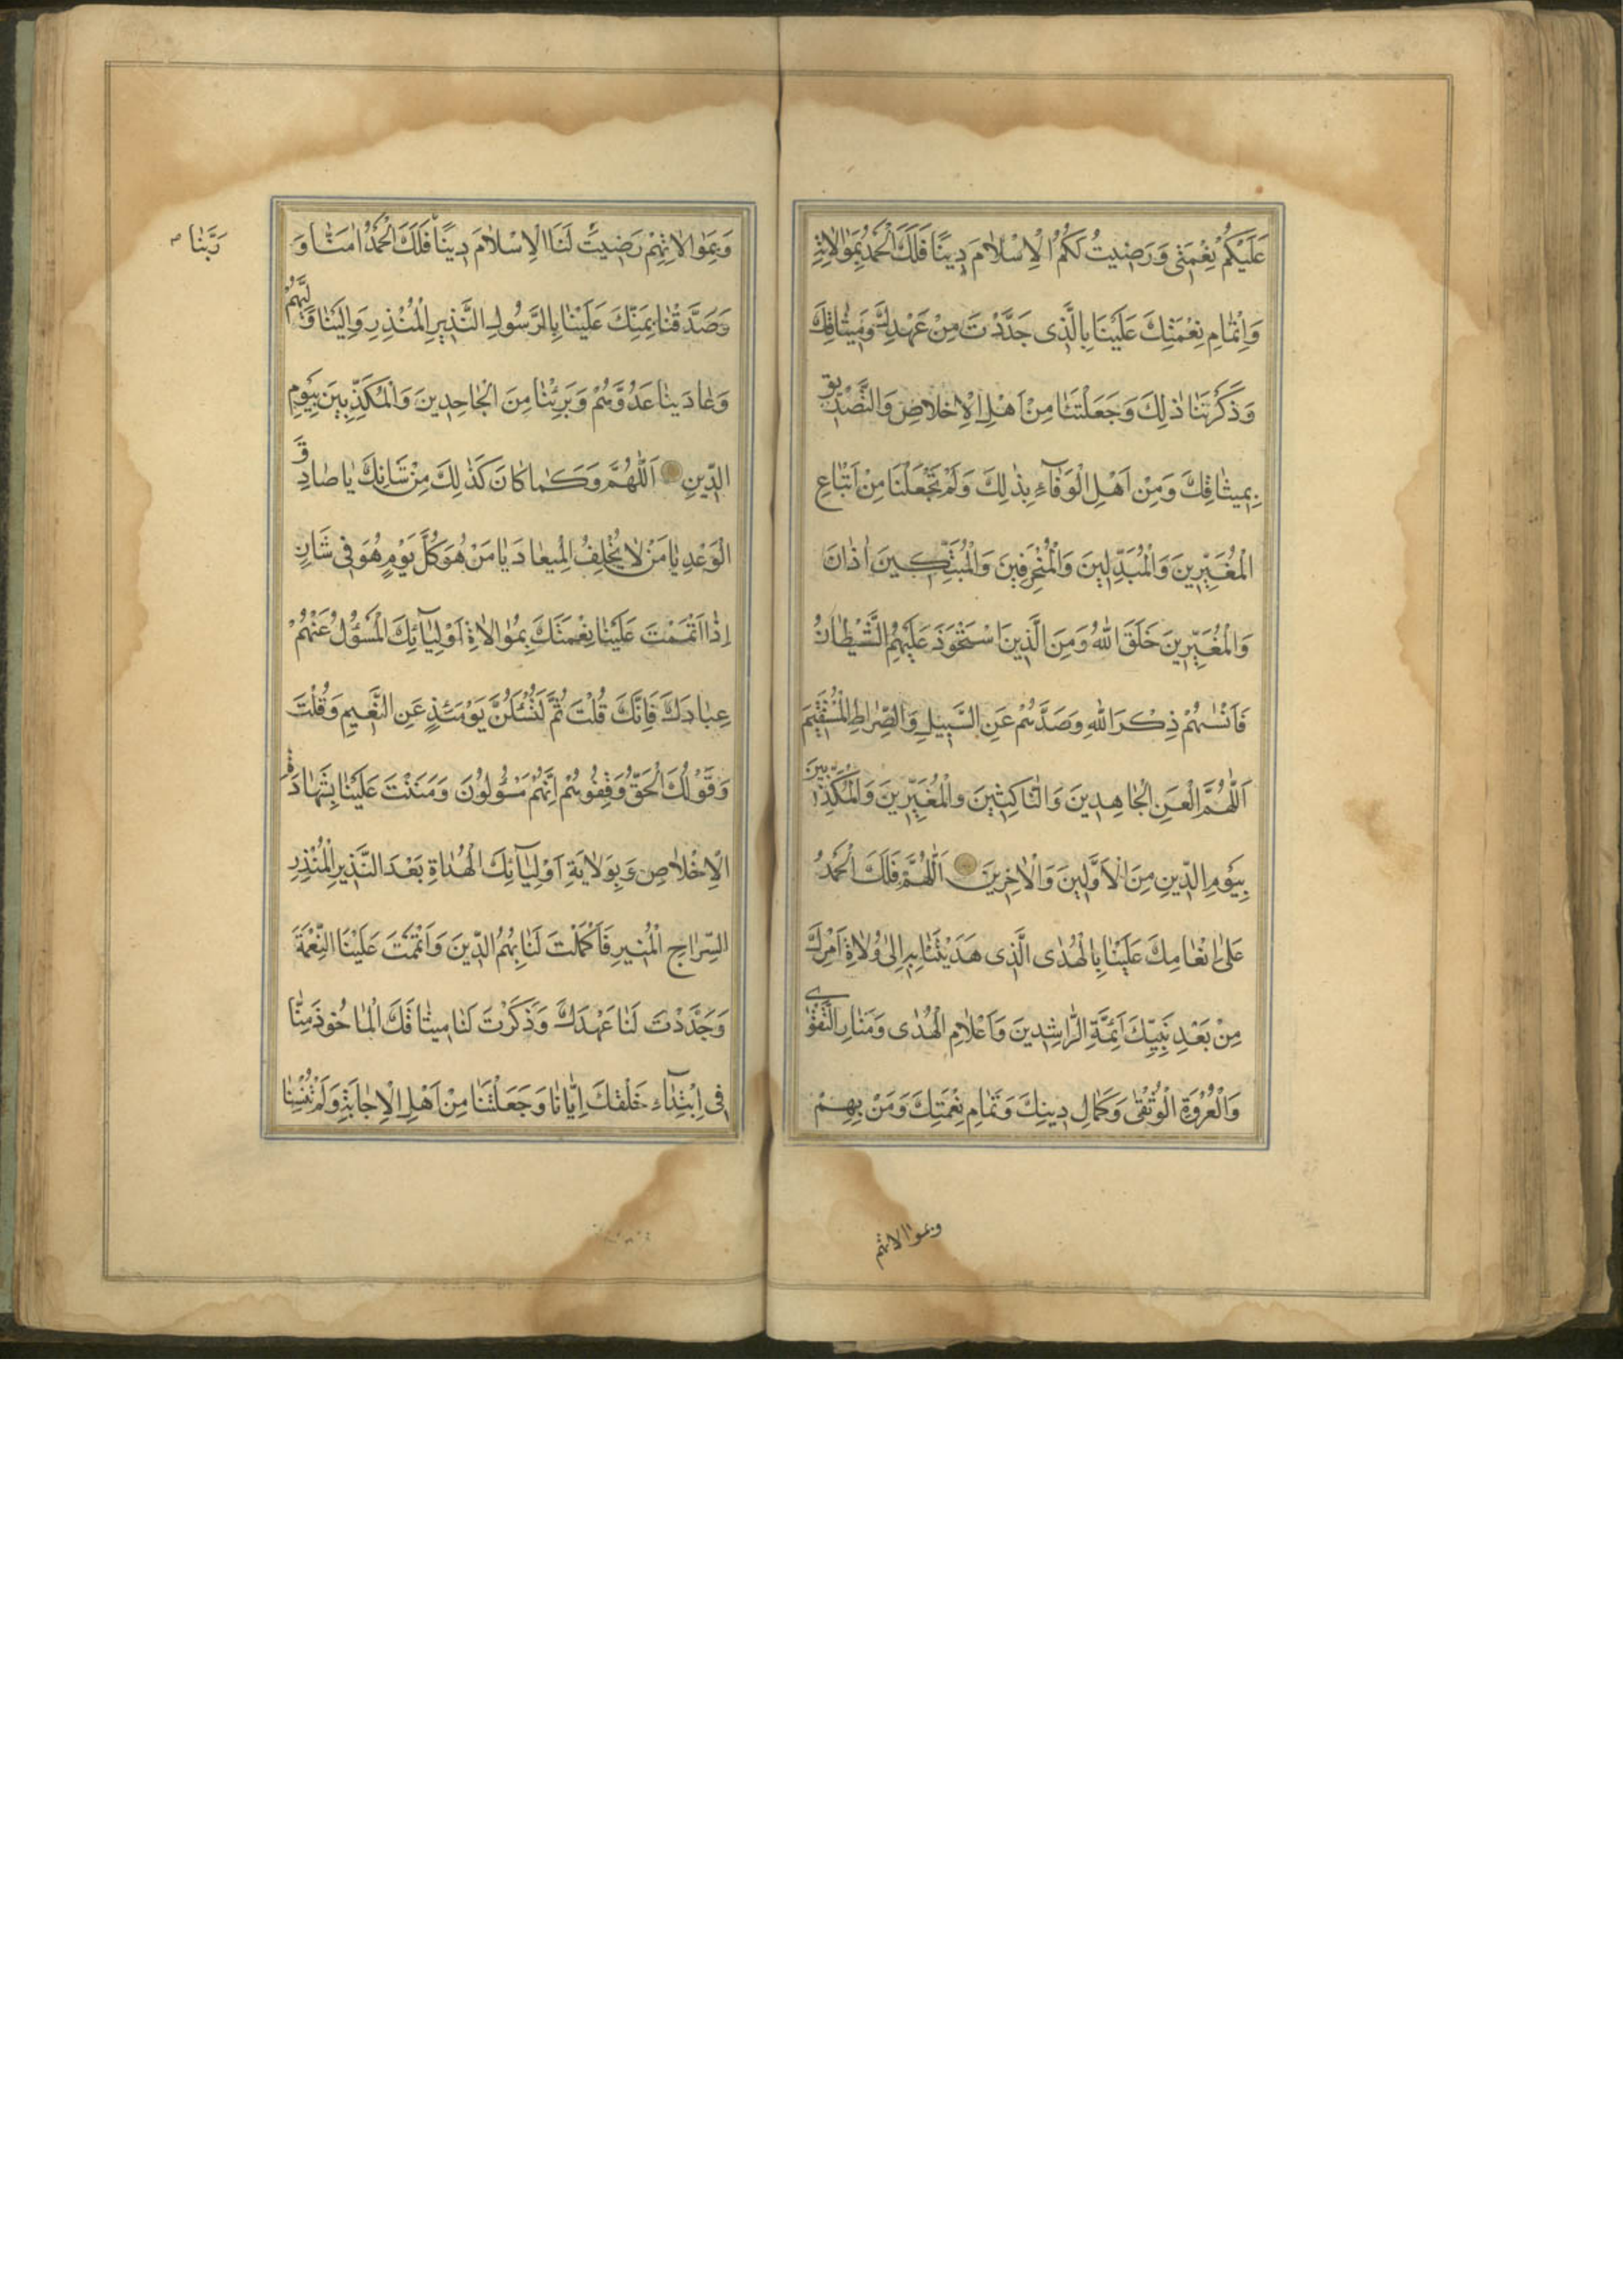 عَلَيْكُمْ نِعْمَتى وَ رَضيتُ لَكُمُ الْاِسْلامَ دينًا فَلَكَ الْحَمْدُ بِمُوالاتِه
وَاِتْمامِ نِعْمَتِكَ عَلَيْنا بِالَّذى جَدَّدْتَ مِنْ عَهْدِكَ وَميثاقِكَ
وَذَكَّرْتَنا ذلِكَ وَجَعَلْتَنا مِنْ اَهْلِ الْاِخْلاصِ وَالتَّصْديقِ
بِميثاقِكَ وَمِنْ اَهْلِ الْوَفآءِ بِذلِكَ وَلَمْ تَجْعَلْنا مِنْ اَتْباعِ
الْمُغَيِّرينَ وَالْمُبَدِّلينَ وَالْمُنْحَرِفينَ وَالْمُبَتِّكينَ اذانَ
وَالْمُغَيِّرينَ خَلَقَ اللهُ وَمِنَ الَّذينَ اسْتَحْوَذَ عَلَيْهِمُ الشَّيْطانُ
فَاَنْسهُمْ ذِكْرَ اللهِ وَصَدَّهُمْ عَنِ السَّبيلِ وَالصِّراطِ الْمُسْتَقيمَ
اَللّهُمَّ الْعَنِ الْجاهِدينَ وَالنّاكِثينَ والْمُغَيِّرينَ وَالْمُكَذِّبينَ
بِيَومِ الدّينِ مِنَ الْاَوَّلينَ وَالْاخِرينَ اَللّهُمَّ فَلَكَ الْحَمْدُ
عَلى اِنْعامِكَ عَلَيْنا بِالْهُدى الَّذى هَدَيْتَنا بِهِ اِلى وُلاةِ اَمْرِكَ
مِنْ بَعْدِ نَبِيِّكَ اَئِمَّةِ الرّاشِدينَ وَاَعْلامِ الْهُدى وَمَنارِ التَّقْوى
وَالْعُرْوَةِ الْوُثْقى وَكَمالِ دينِكَ وَتَمامِ نِعْمَتِكَ وَمَنْ بِهِمْ
وبموالاتهم
وَبِمُوالاتِهِمْ رَضيتَ لَنَا الْاِسْلامَ دينًا فَلَكَ الْحَمْدُ امَنّا وَ
رَبَّنا
وَصَدَّقْنا بِمَنِّكَ عَلَيْنا بِالرَّسُولِ النَّذيرِ الْمُنْذِرِ وَالَيْنا وَلِيَّهُمْ
وَعادَيْنا عَدُوَّهُمْ وَبَرِئْنا مِنَ الْجاحِدينَ وَالْمُكَذِّبينَ بِيَومِ
الدّينِ اَللّهُمَّ وَكَما كانَ كَذلِكَ مِنْ شَانِكَ يا صادِقَ
الْوَعْدِ يا مَنْ لا يُخْلِفُ الْميعادَ يا مَنْ هُوَ كُلَّ يَوْمٍ هُوَ فى شَانٍ
اِذْ اَتْمَمْتَ عَلَيْنا نِعْمَتَكَ بِمُوالاةِ اَوْلِيآئِكَ الْمَسْؤُلُ عَنْهُمْ
عِبادَكَ فَاِنَّكَ قُلْتَ ثُمَّ لَتُسْئَلُنَّ يَوْمَئِذٍ عَنِ النَّعيمِ وَقُلْتَ
وَقَوْلُكَ الْحَقُّ وَقِفُوهُمْ اِنَّهُمْ مَسْؤُلُونَ وَمَنَنْتَ عَلَيْنا بِشَهادَةِ
الْاِخْلاصِ وَبِوَلايَةِ اَوْلِيآئِكَ الْهُداةِ بَعْدَ النَّذيرِ الْمُنْذِرِ
السِّراجِ الْمُنيرِ فَاَكْمَلْتَ لَنا بِهِمُ الدّينَ وَاَتْمَمْتَ عَلَيْنَا النِّعْمَةَ
وَجَدَّدْتَ لَنا عَهْدَكَ وَذَكَّرْتَ لَنا ميثاقَكَ الْماخُوذَ مِنّا
فى اِبْتِدآءِ خَلْقِكَ اِيّانا وَجَعَلْتَنا مِنْ اَهْلِ الْاِجابَةِ وَلَمْ تُنْسِنا